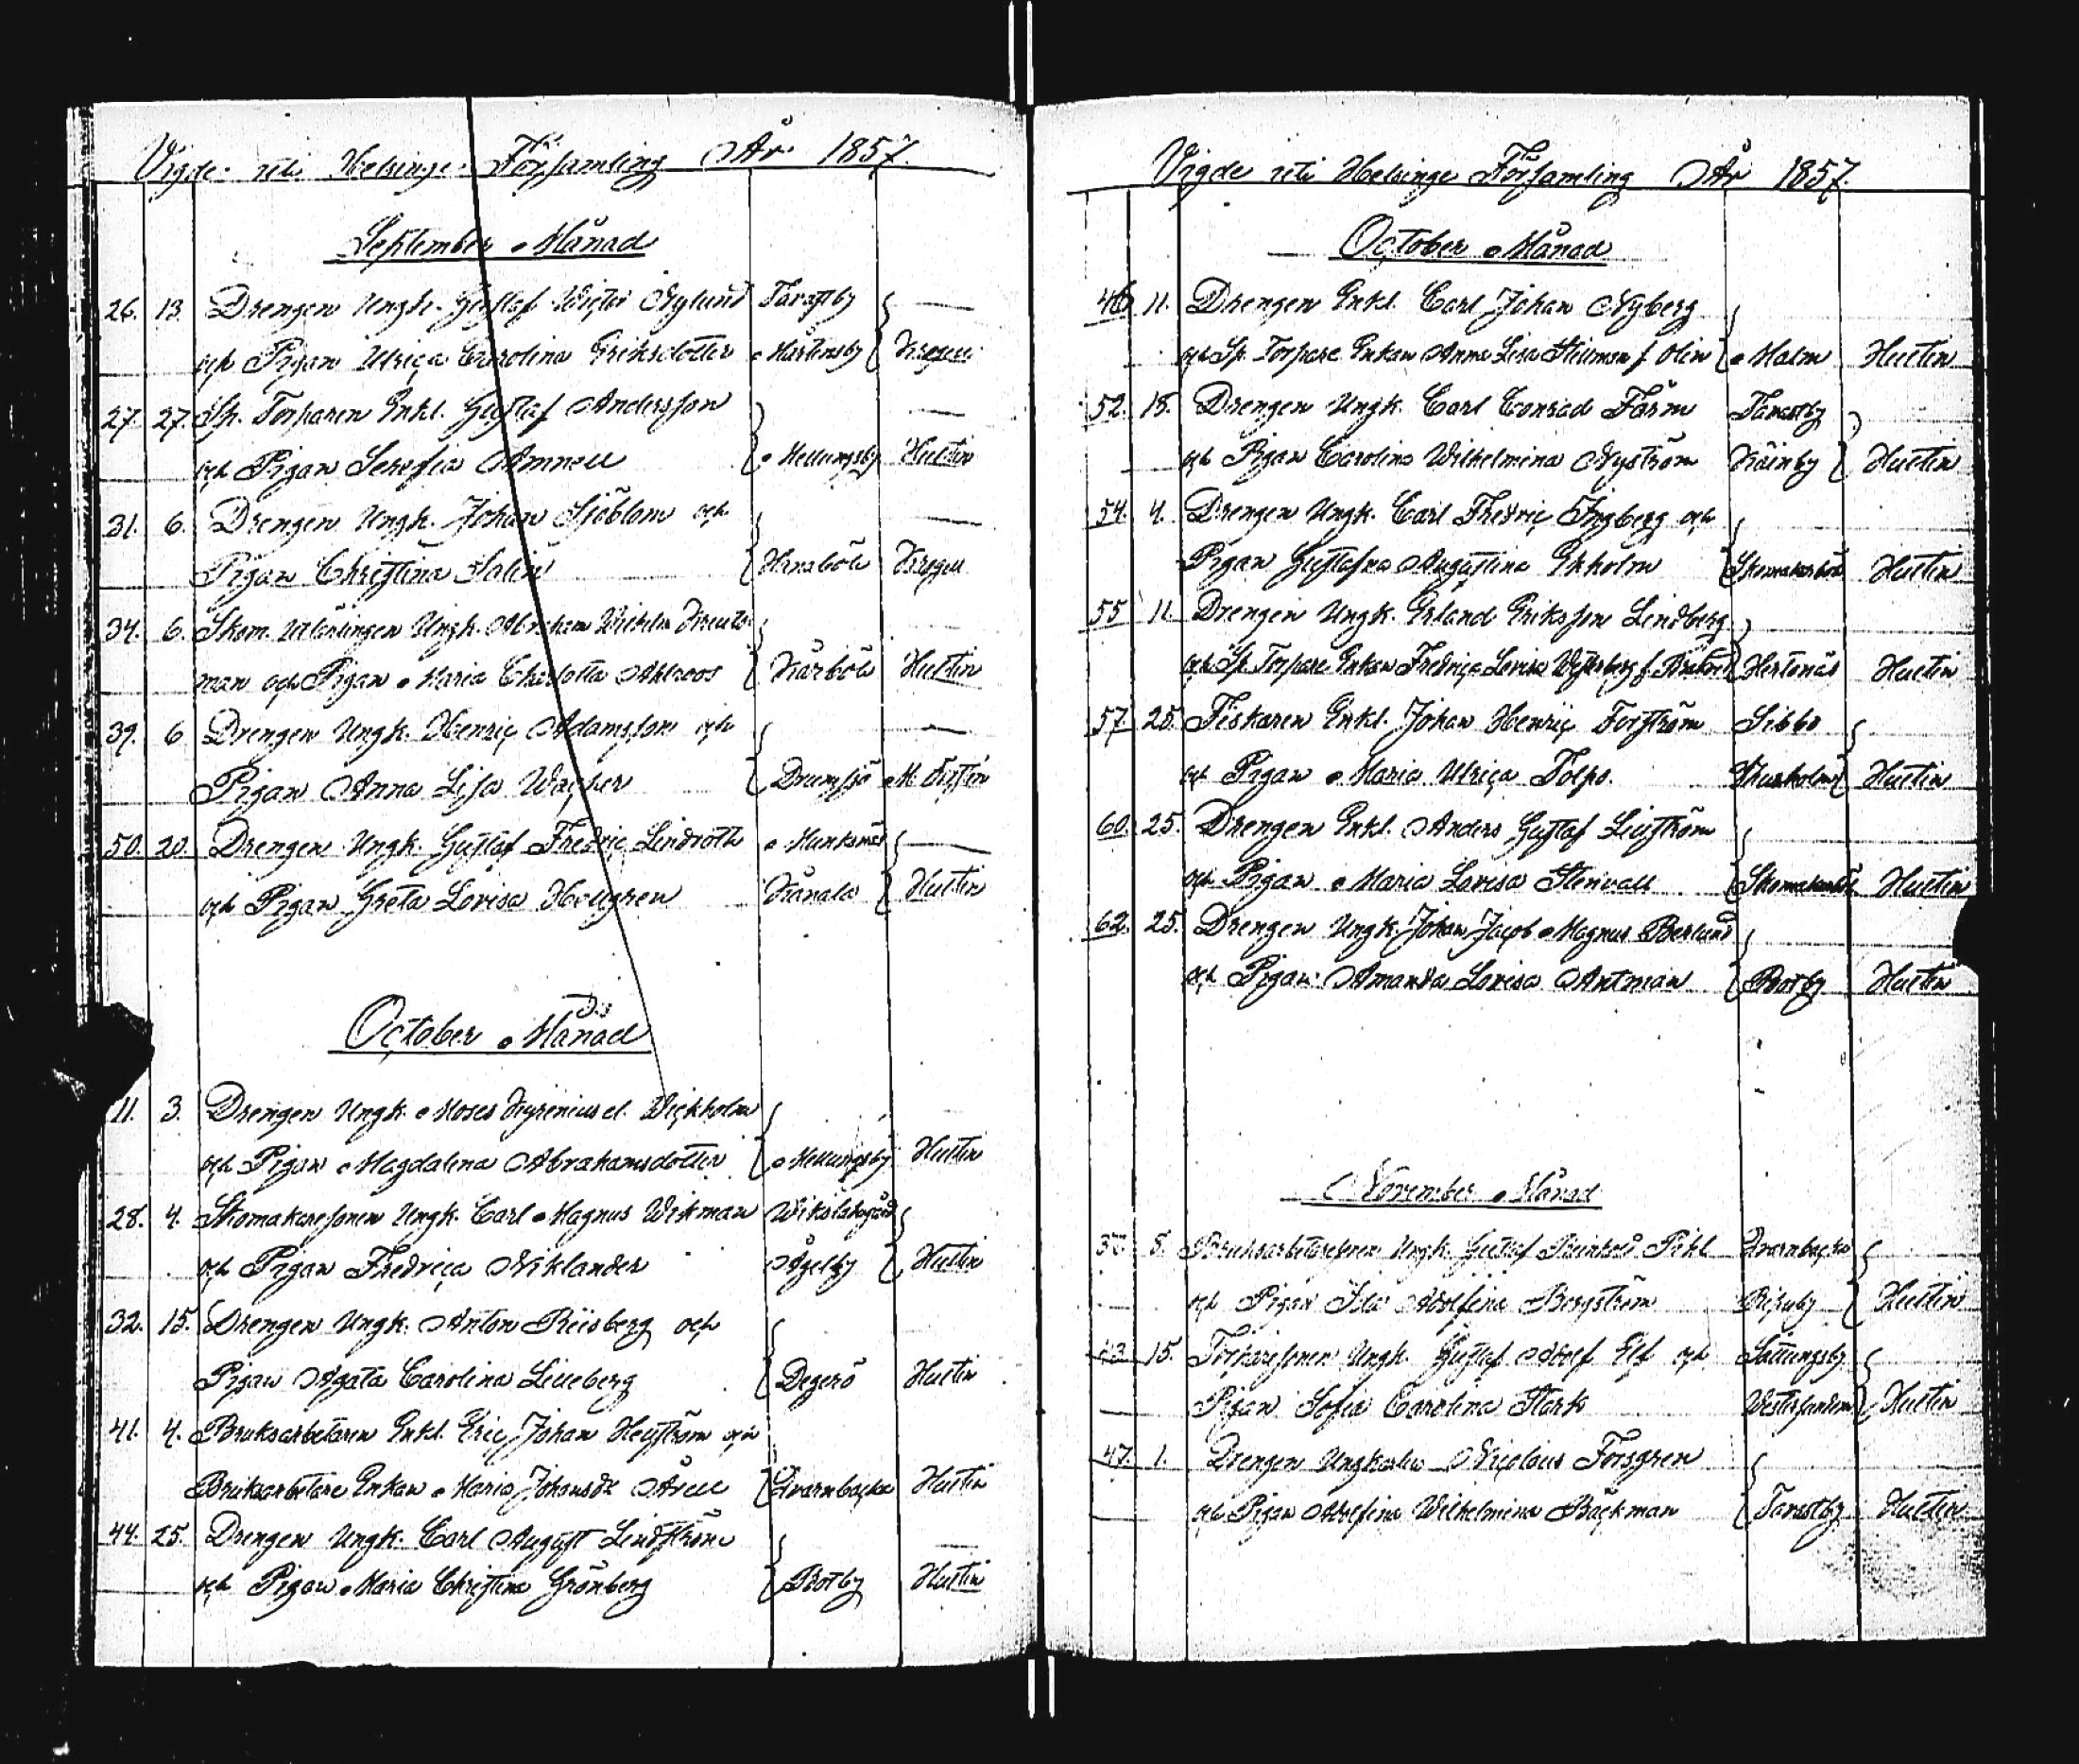 Vigde uti Helsinge Församling År 1857.
September Månad
26. 13. Drengen Ungk. Gustaf Wictor Nylund Tavastby
och Pigan Ulrica Carolina Eriksdotter Mårtensby
27. 27. Sp. Torparen Enkl. Gustaf Andersson
och Pigan Serafia Amnell Mellungsby Hultin
31. 6. Drengen Ungk. Johan Sjöblom och
Pigan Christina Salin Hanaböle
34. 6. Skom. Ungk. Abraham Wilhelm
man och Pigan Maria Charlotta Ahlroos Kårböle Hultin
39. 6 Drengen Ungk. Henric Adamsson och
Pigan Anna Lisa Drumsjö
50. 20. Drengen Ungk. Gustaf Fredric Lindroth Munksnäs
och Pigan Greta Lovisa Hollgren Kånala Hultin
October Månad
11. 3. Drengen Ungk. Moses el. Wickholm
och Pigan Magdalena Abrahamsdotter Mellungsby Hultin
28. 4. Skomakaresonen Ungk. Carl Magnus Wikman
och Pigan Fredrica Niklander Åggelby Hultin
32. 15. Drengen Ungk. Anton Riisberg och
Pigan Agata Carolina Lilleberg Degerö Hultin
41. 4. Bruksarbetaren Enkl. Eric Johan Hellström och
Bruksarbetare Enkan Maria Johansdr Qvarnbacka Hultin
44. 25. Drengen Ungk. Carl August Lindström
och Pigan Maria Christina Grönberg Botby Hultin
Vigde uti Helsinge Församling År 1857.
October Månad
46 11. Drengen Enkl. Carl Johan Nyberg
och Sp. Torpare Enkan Anna Lisa f. Olin Malm Hultin
52. 18. Drengen Ungk. Carl Conrad Färm Tavastby
och Pigan Carolina Wilhelmina Nyström Käinby Hultin
54. 4. Drengen Ungk. Carl Fredric Ingberg och
Pigan Gustafva Augustina Ekholm Skomakarböle Hultin
55 11. Drengen Ungk. Erland Eriksson Lindberg
och Sp. Torpare Enkan Fredrica Lovisa Westerberg f. Hertonäs Hultin
57. 25. Fiskaren Enkl. Johan Henric Forström Sibbo
och Pigan Maria Ulrica Tolpo. Hultin
60. 25. Drengen Enkl. Anders Gustaf Liljström
och Pigan Maria Lovisa Stenvall Skomakarböle Hultin
62. 25. Drengen Ungk. Johan Jacob Magnus Berlund
och Pigan Amanda Lovisa Antman Botby Hultin
November Månad
8. Bruksarbetaresonen Ungk. Gustaf Reinhold Pihl Qvarnbacka
och Pigan Ida Adolfina Bergström Ripuby Hultin
43. 15. Torparesonen Ungk. Gustaf Adolf Elf och Sottungsby
Pigan Sofia Carolina Stark Westersundom Hultin
47. 1. Drengen Ungkarlen Nicolaus Forsgren
och Pigan Adolfina Wilhelmina Bäckman Tavastby Hultin